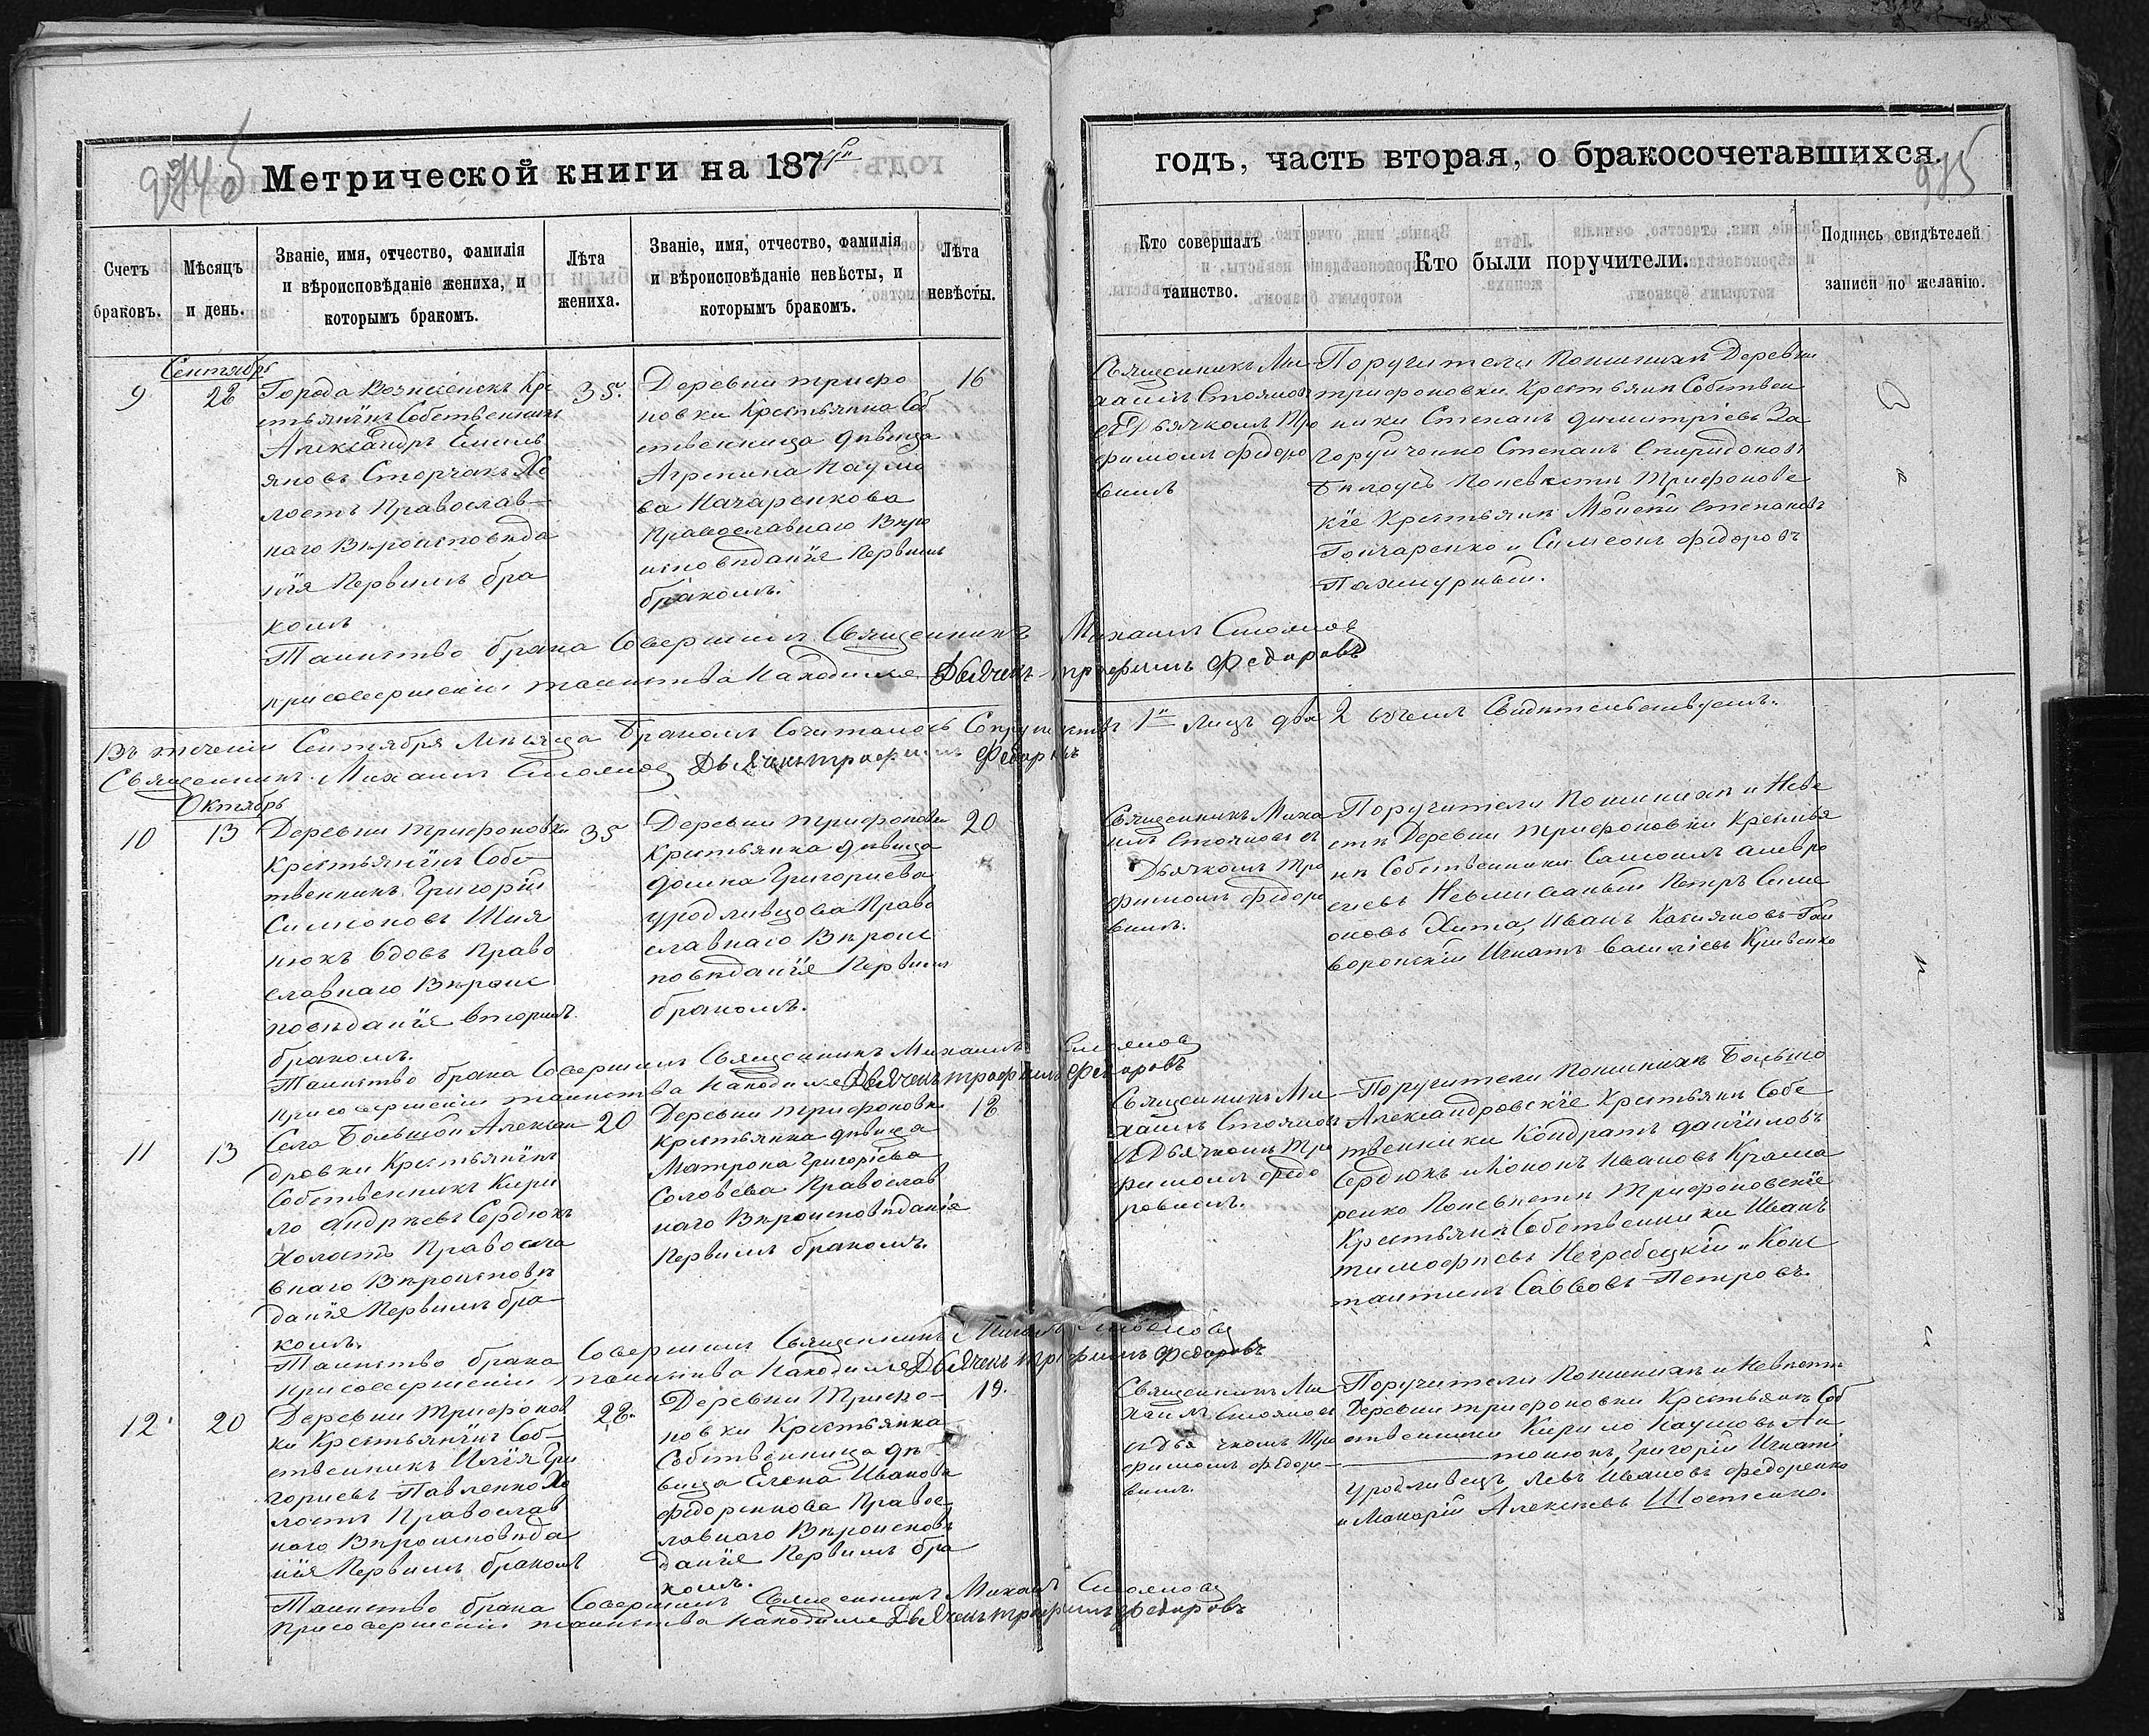 Метрической книги на 187
годъ, часть вторая, о бракосочетавшихся.
985
Счетъ браковъ.
Мѣсяцъ и день.
Званіе, имя, отчество, фамилія
и вѣроисповѣданіе жениха, и
которымъ бракомъ.
Лѣта
жениха.
Званіе, имя, отчество, фамилія
и вѣроисповѣданіе невѣсты, и
которымъ бракомъ.
Лѣта
невѣсты.
Кто совершалъ
таинство.
Кто были поручители.
Подпись свидѣтелей
записи по желанію.
Сентябрь
9
28
Города Вознесенск Кре
стьянинъ Собственникъ
Александръ Емель
яновъ Сторчакъ Хо
лостъ Православ-
наго Вѣроисповѣда
нія Первымъ бра
комъ
35.
Деревни Трифо
новки Крестьянка Соб
ственница дѣвица
Агрепина Наумо
ва
Православнаго Вѣро
исповѣданія Первымъ
бракомъ.
16
Священникъ Ми
хаилъ Стояновъ
съ Дьячкомъ Тро
фимомъ Федоро
вымъ
Поручители По женихѣ Деревни
Трифоновки Крестьяне Собствен
ники Степанъ Димитріевъ За
горуйченко Степанъ Спиридоновъ
Бѣлоусъ По невѣстѣ Трифоновс
кіе Крестьяне Моисей Степановъ
Гончаренко и Симеонъ Федоровъ
Таинство брака Совершилъ Священникъ Михаилъ Стояновъ
при совершеніи таинства Находился Дьячекъ Трофимъ Федоровъ
Въ теченіи Сентября Мѣсяца Бракомъ Сочиталось Супружествъ 1 Лицъ два 2 въ чемъ Свидѣтельствуемъ.
Священникъ Михаилъ Стояновъ Дьячекъ Трофимъ Федоровъ
Октябрь
10
13
Деревни Трифоновки
Крестьянинъ Собс-
твенникъ Григорій
Симеоновъ
вдовъ Право
славнаго Вѣроис
повѣданія вторымъ
бракомъ.
35
Деревни Трифоновки
Крестьянка дѣвица
Домна Григориева
Уродливцова Право
славнаго Вѣроис
повѣданія Первымъ
бракомъ.
20
Священникъ Миха
илъ Стояновъ съ
Дьячкомъ Тро
фимомъ Федоро
вымъ.
Поручители По женихѣ и Неве
стѣ Деревни Трифоновки Крестья
нѣ Собственники Самоилъ
Петръ Симе
оновъ Хита, Иванъ
Игнатъ Василіевъ Кривенко
Таинство брака Совершилъ Священникъ Михаилъ Стояновъ
при совершеніи таинства Находился Дьячекъ Трофимъ Федоровъ
11
13
Села Большой Алексан
дровки Крестьянинъ
Собственникъ Кири
ло Андрѣевъ Сердюкъ
Холостъ Правосла
внаго Вѣроисповѣ
данія Первымъ бра
комъ.
20
Деревни Трифоновки
Крестьянка дѣвица
Матрона Григоріева
Соловьева Православ
наго Вѣроисповѣданія
Первымъ бракомъ.
18
Священникъ Ми
хаилъ Стояновъ
съ Дьячкомъ Тро
фимомъ Федо
ровымъ.
Поручители По женихѣ Большо
Александровскіе Крестьяне Собс
твенники Кондратъ Даніиловъ
Сердюкъ и Кононъ Ивановъ Крама
ренко По невѣстѣ Трифоновскіе
Крестьяне Собственники Иванъ
Тимофѣевъ Негребецкій и Конс
тантинъ Саввовъ Петровъ.
Таинство брака Совершилъ Священникъ Михаилъ Стояновъ
при совершеніи таинства Находился Дьячекъ Трофимъ Федоровъ
12
20
Деревни Трифонов
ки Крестьянинъ Соб-
ственникъ Илія Гри
гориевъ Павленко Хо
лостъ Православ
наго Вѣроисповѣда
нія Первымъ бракомъ
22.
Деревни Трифо-
новки Крестьянка
Собственница дѣ-
вица Елена Иванова
Федоренкова Правос
лавнаго Вѣроисповѣ
данія Первымъ бра
комъ.
19.
Священникъ Ми
хаилъ Стояновъ
съ Дьячкомъ Тро
фимомъ Федоро-
вымъ.
Поручители По женихѣ и Невѣстѣ
Деревни Трифоновки Крестьяне Соб
ственники Кирило Наумовъ Ан
тонюкъ, Григорій Игнаті
Уродливецъ, Левъ Ивановъ Федоренко
и Макарій Алексѣевъ Шостенко.
Таинство брака Совершилъ Священникъ Михаилъ Стояновъ
При совершеніи таинства находился Дьячекъ Трофимъ Федоровъ